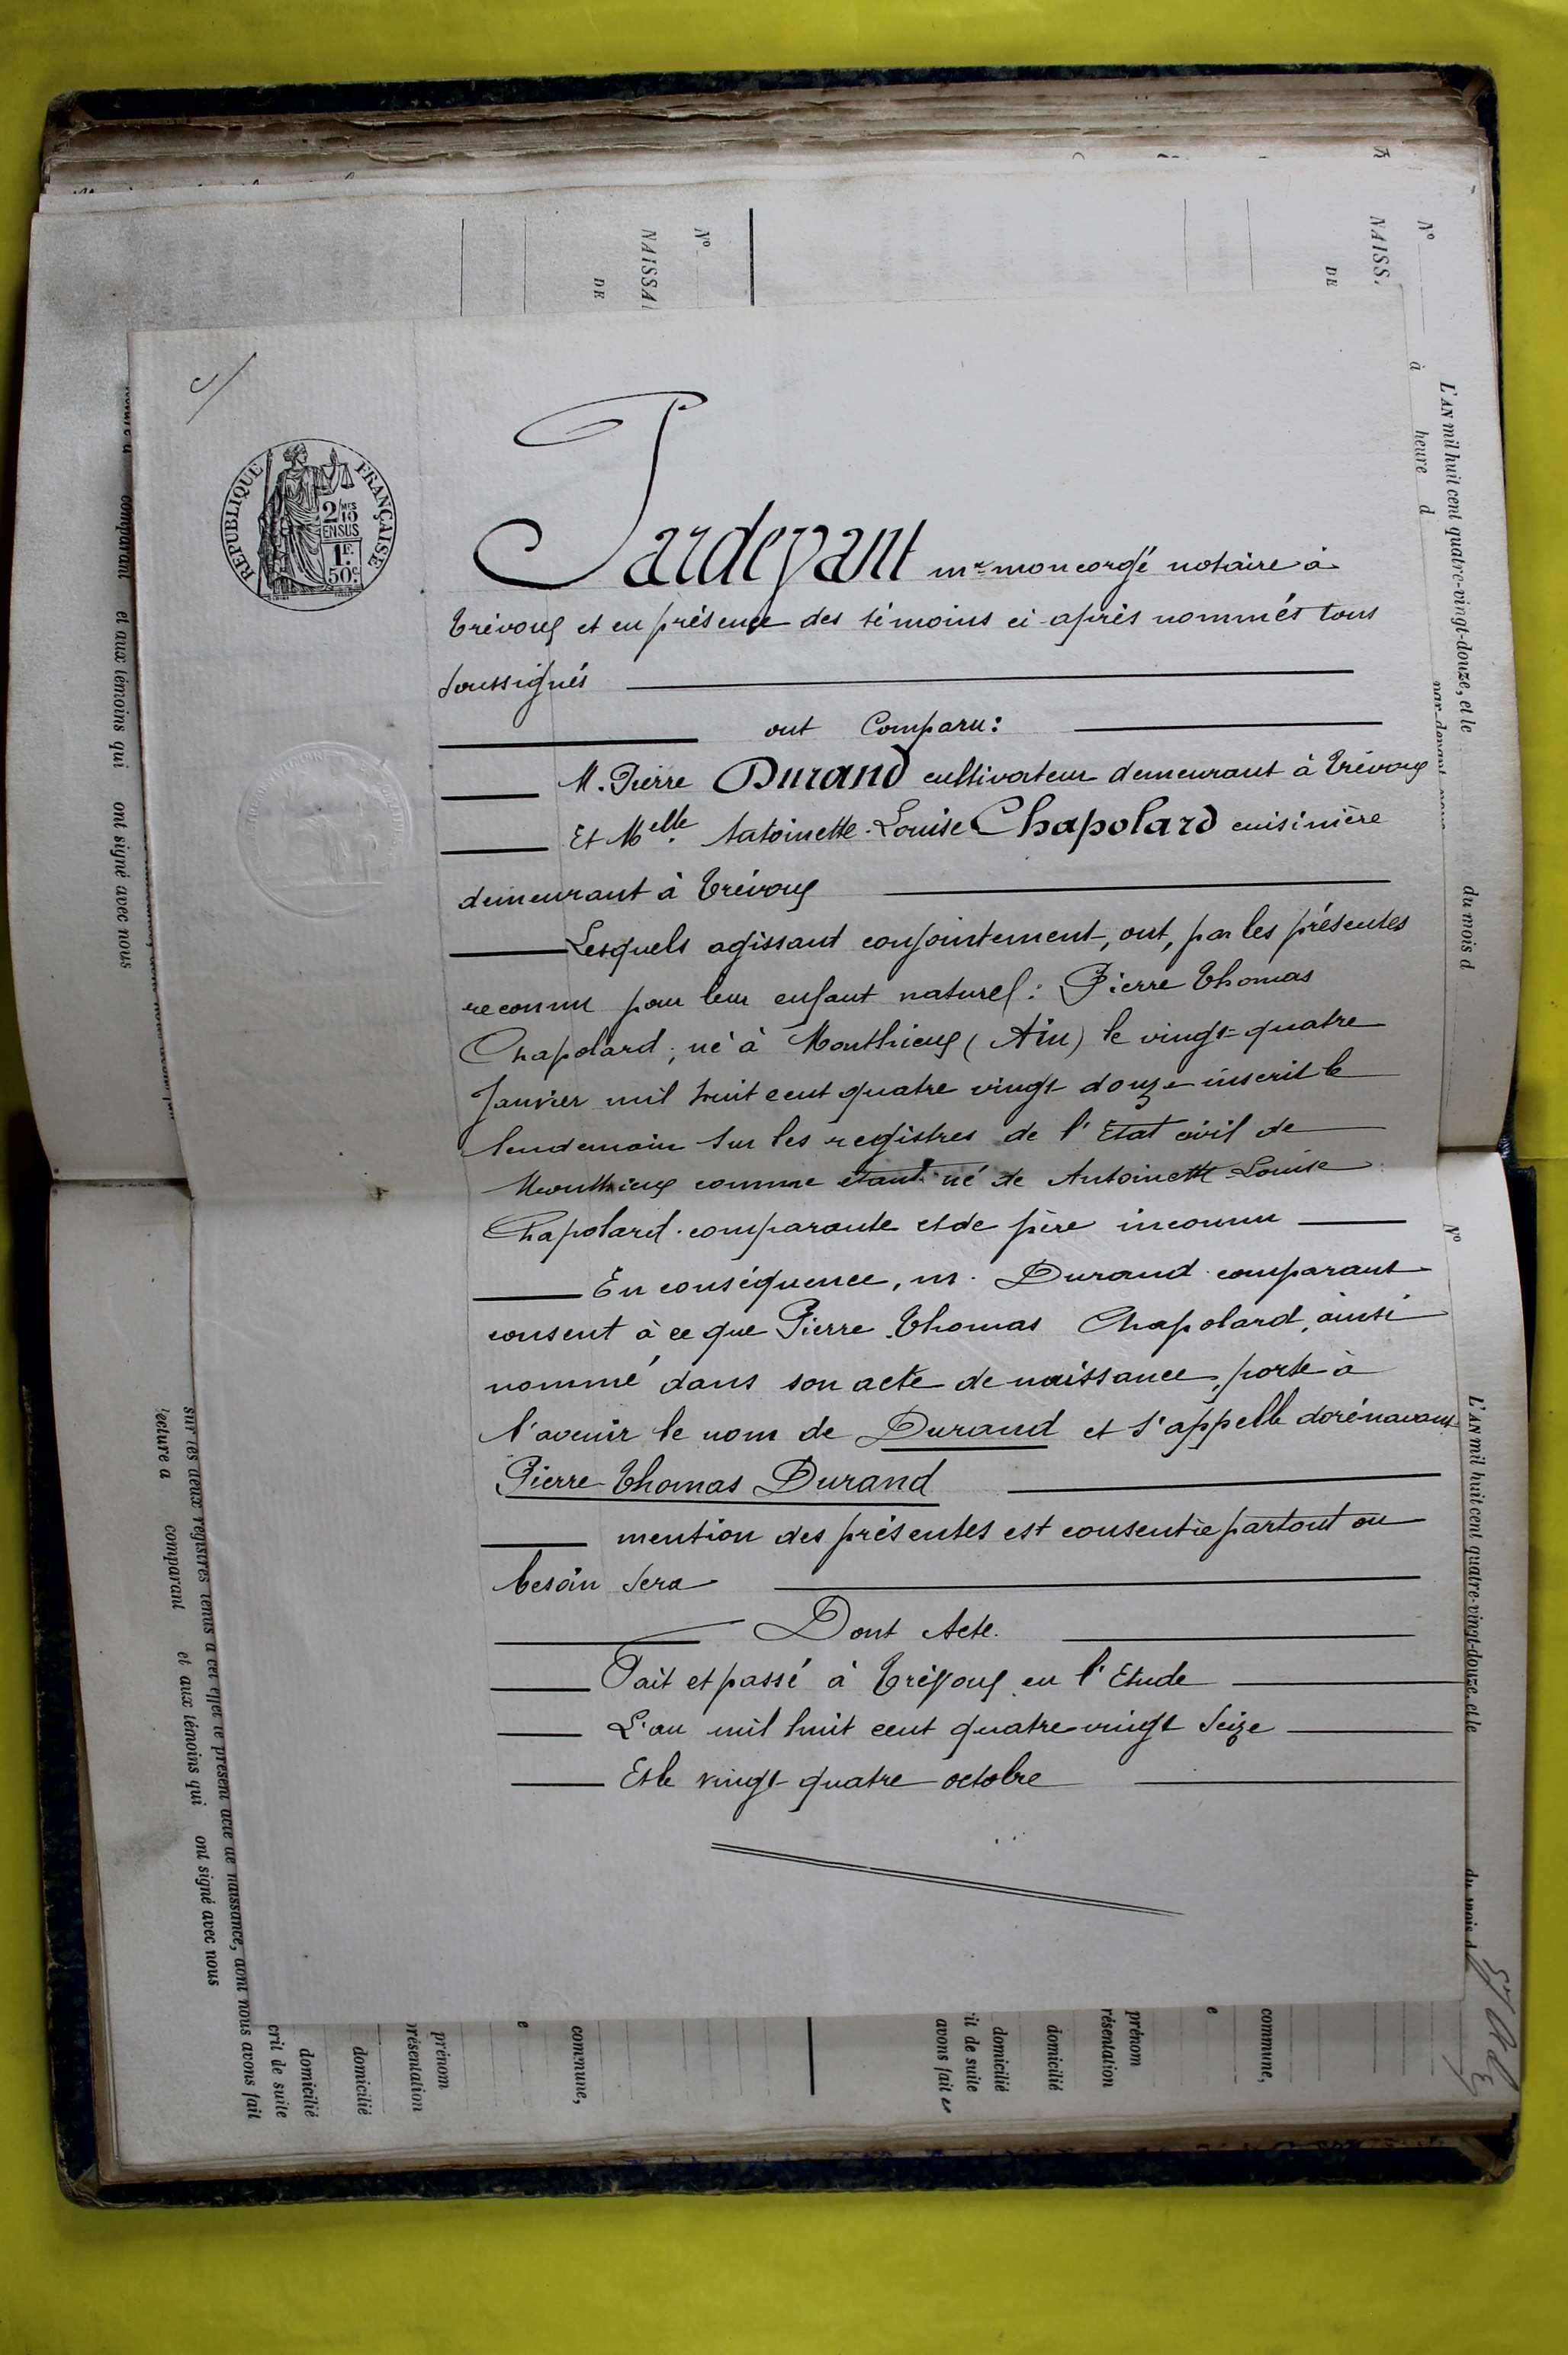 Nº
NAISSA
DE
Nº
NAISS.
DE
L'AN mil huit cent quatre-vingt-douze, et le
du mois d
à
heure
d
comparant
et aux témoins qui
ont signé avec nous
REPUBLIQUE FRANÇAISE
2/10 MES
EN SUS
1F.
50c.
Pardevant Me moncorgé notaire à
Trévoux et en présence des témoins ci-après nommés tous
soussignés
ont Comparu:
M. Pierre Durand cultivateur demeurant à Trévoux
Et Melle Antoinette-Louise Chapolard cuisinière
demeurant à Trévoux
Lesquels agissant conjointement, ont, par les présentes
reconnu pour leur enfant naturel: Pierre Thomas
Chapolard, né à Monthieux (Ain) le vingt-quatre
Janvier mil huit cent quatre vingt douze inscrit le
lendemain sur les registres de l'Etat civil de
Monthieux comme étant né de Antoinette Louise
Chapolard comparante et de père inconnu
En conséquence, m. Durand comparant
consent à ce que Pierre Thomas Chapolard, ainsi
nommé dans son acte de naissance, porte à
l'avenir le nom de Durand et s'appelle dorénavant
Pierre-Thomas Durand
mention des présentes est consentie partout ou
besoin sera
Dont Acte.
Fait et passé à Trévoux en l'Etude
L'an mil huit cent quatre-vingt seize
Et le vingt-quatre octobre
Nº
L'AN mil huit cent quatre-vingt-douze, et le
du mois d
sur les deux registres tenus à cet effet le présent acte de naissance, dont nous avons fait
lecture a
comparant
et aux témoins qui
ont signé avec nous
crit de suite
domicilié
domicilié
présentation
prénom
e
commune,
avons fait
it de suite
domicilié
domicilié
résentation
prénom
e
commune,